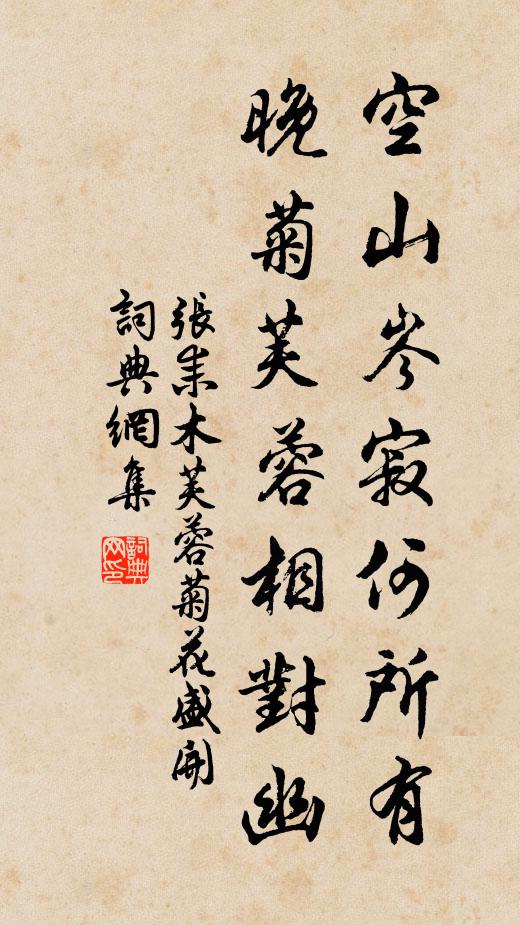 空山岑寂何所有
晚菊芙蓉相對幽
張耒木芙蓉菊花盛開
詞典網集
詞典网印